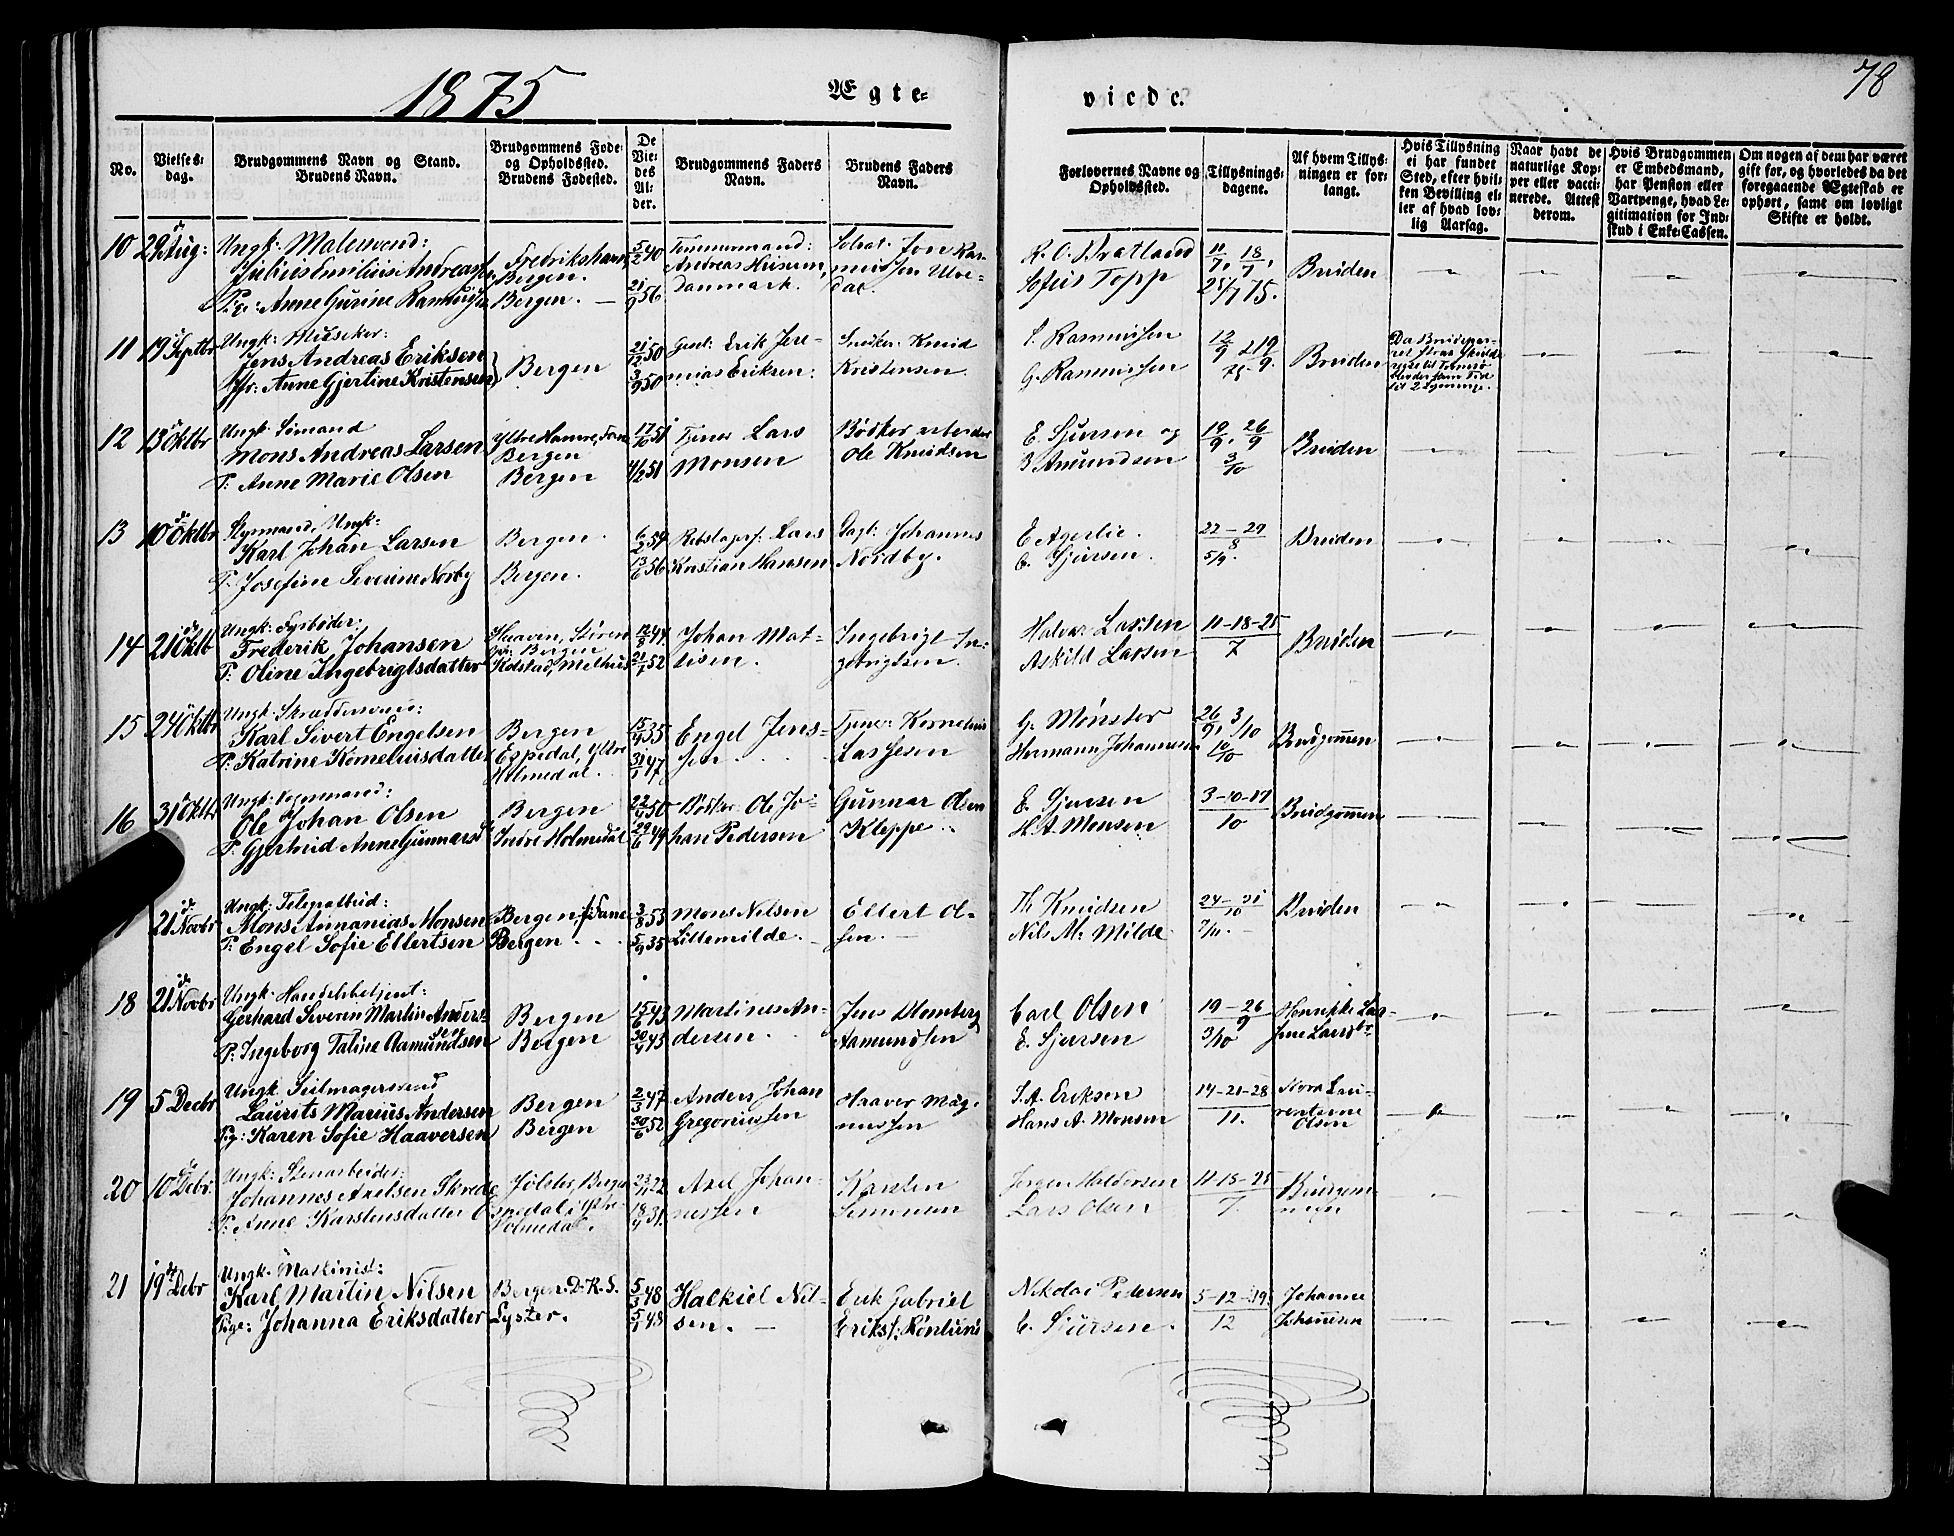 1875
Ægte-
viede.
78
No.
Vielses-
dag.
Brudgommens Navn og Stand.
Brudens Navn.
Brudgommens Føde-
og Opholdssted.
Brudens Fødested.
De
Vie-
des
Al-
der.
Brudgommens Faders
Navn.
Brudens Faders
Navn.
Forlovernes Navne og
Opholdssted.
Tillysnings-
dagene.
Af hvem Tillys-
ningen er for-
langt.
Hvis Tillysning
ei har fundet
Sted, efter hvil-
ken Bevilling el-
ler af hvad lov-
lig Aarsag.
Naar havt de
naturlige Kop-
per eller vacci-
nerede. Attest
derom.
Hvis Brudgommen
er Embedsmand,
har Pension eller
Vartpenge, hvad Le-
gitimation for Ind-
skud i Enke-Cassen.
Om nogen af dem har været
gift før, og hvorledes da det
foregaaende Ægteskab er
ophørt, samt om lovligt
Skifte er holdt.
10 29 Aug: Ungk: Malersvend:
Julius Emilius Andreas
Pige: Anne Gurine Rasmus
Fredrikshavn,
Bergen.
Bergen. —
5/2 40
21/9 56
Tømmermand:
Andreas
Danmark.
Jon Ras-
mussen Ulve-
dal.
K. O. Bratland
Sofus Topp
11/7, 18/7,
25/7 75.
Bruden
11 19 Septbr Ungk: Musiker:
Jens Andreas Eriksen
Jfr: Anne Gjertine Kristensen
Bergen
21/12 50
3/9 50
Erik Jere-
mias Eriksen:
Snedker: Knud
Kristensen.
S. Rasmussen
G. Rasmussen
12/9 19/9
Bruden
12 13 Oktbr Ungk: Sømand
Mons Andreas Larsen
P: Anne Marie Olsen
Ytre Hamre, Fane
Bergen
Bergen
17/10 51
4/2 51
Tjener Lars
Monsen
Bødker arbeider
Ole Knudsen
E. Sjursen og
Amundsen
19/9, 26/9
3/10
Bruden
13 10 Oktbr Styrmand, Ungk:
Karl Johan Larsen
P. Josefine Severine Norby
Bergen.
Bergen.
6/2 54
12/6 56
Rebslager: Lars
Kristian Hansen
Dagl: Johannes
Nordby.
E Agerlie.
E. Sjursen.
22 - 29
8
5/9.
Bruden
14 21 Oktb Ungk: Fyrbøder:
Frederik Johansen
P: Oline Ingebrigtsdatter
Haaven, Støren
Bergen
Kolstad, Melhus
12/8 44
21/1 52
Johan Mat-
tisen.
Ingebrigt In-
gebrigtsen.
Halvar Larsen
Askild Larsen
11-18-25
7
Bruden
15 24 Oktbr Ungk: Skræddersvend:
Karl Sivert Engelsen
P: Katrine Korneliusdatter
Bergen
Espedal, Ytre
Holmedal.
15/9 35
31/1 47
Engel Jens-
sen.
Tjener: Kornelius
Lassesen
G. Mønster
Hermann Johannesen
26/9, 3/10
10/10
Brudgommen
16 31 Oktbr Ungk:
Ole Johan Olsen
P: Gjertrud Anne Gunnarsd
Bergen
Indre Holmedal
22/9 50
29/6 49
Bødker Ole Jo-
han Pedersen
Gunnar Olsen
Kleppe.
E. Sjursen
H. A. Monsen
3-10-17
10
Brudgommen
21 Novbr Ungk: Telegrafbud:
Mons Annanias Monsen
P: Engel Sofie Ellertsen
Bergen f: Fane
Bergen.
3/8 53
5/9 35
Mons Nilsen
Lillemilde.
Ellert Ol-
sen.
Th Knudsen
Nils M. Milde
24 - 31
10
7/11.
Bruden
18 21 Novbr Ungk: Handelsbetjent:
Gerhard Severin Martin Anders-
sen
P: Ingeborg Taline Aamundsen
Bergen
Bergen
15/6 43
30/4 45
Martinus An-
dersen.
Jens
Aamundsen
Carl Olsen
E. Sjursen
19 - 26
9
3/10
Henrikke Lar-
sine
19 5 Decbr Ungk Seilmagersvend
Laurits Marius Andersen
Pig: Karen Sofie Haaversen
Bergen
Bergen
2/3 47
30/6 52
Anders Johan
Gregoriussen
Haaver Mag-
nussen
S. A. Eriksen
Hans A. Monsen
14-21-28
11.
Nora Lau-
rentsine
Olsen
20 10 Debr. Ungk: Stenarbeider:
Johannes Axelsen Skrede
P: Anne Karstensdatter
Jølster, Bergen
Espedal i Ytre
Holmedal.
23/11 22
18/4 31
Axel Johan-
nessen
Karsten
Simonsen
Jørgen Haldorsen
Lars Olsen
11-18-25
7.
Brudgom-
men
21 19 Debr Ungk. Maskinist:
Karl Martin Nilsen
Pige: Johanna Eriksdatter
Bergen. D. K. S.
Lyster.
5/3 48
5/1 48
Halkiel Nil-
sen. —
Erik Gabriel
Eriks: Rønlund
Nikolai Pedersen
E. Sjursen.
5-12-19
12
Johanne
Johannesen